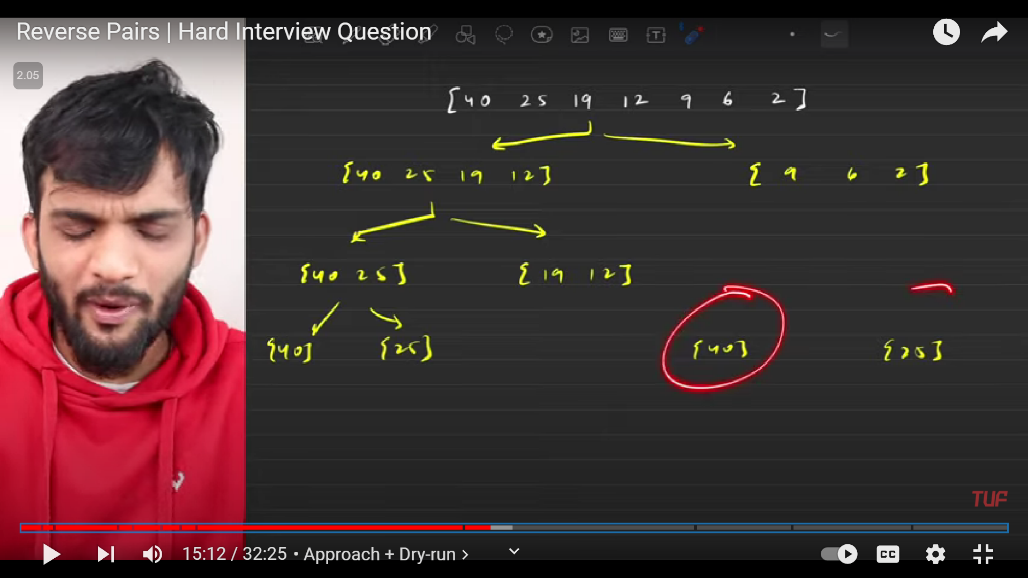 Reverse Pairs | Hard Interview Question
2.05
[40 25 19 12 9 6 2]
[40 25 19 12] [9 6 2]
[40 25] [19 12]
[40] [25] [40] [25]
TUF
15:12 / 32:25 • Approach + Dry-run >
CC